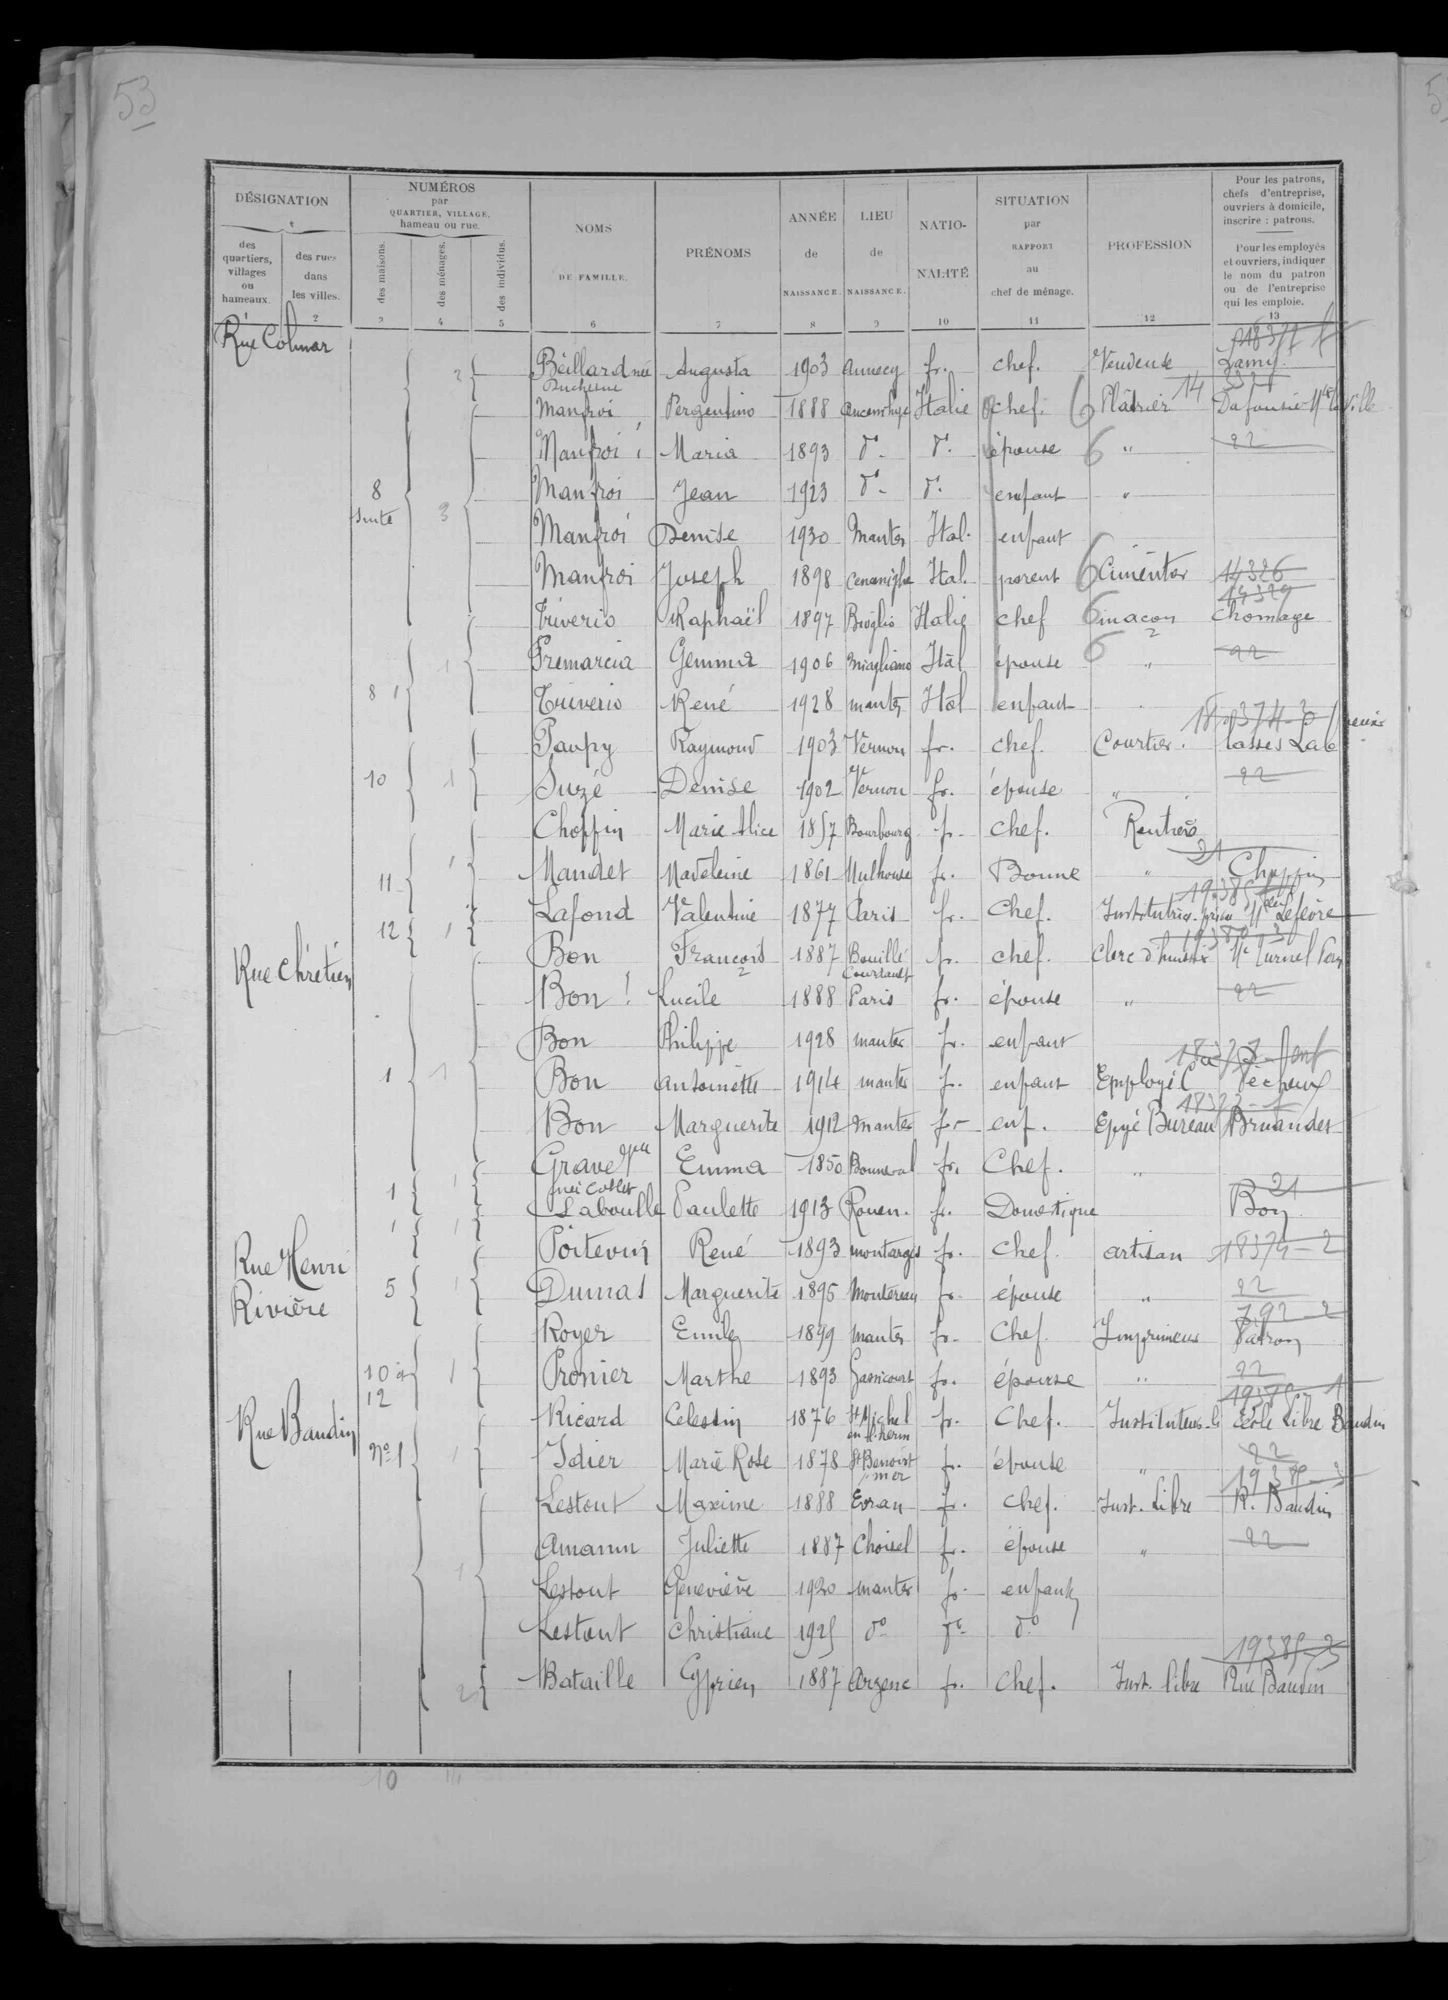 53
DÉSIGNATION
des quartiers, villages ou hameaux.
des rues dans les villes.
NUMÉROS
par
QUARTIER, VILLAGE,
hameau ou rue.
des maisons.
des ménages.
des individus.
NOMS
DE FAMILLE.
PRÉNOMS
ANNÉE
de
NAISSANCE.
LIEU
de
NAISSANCE.
NATIO-
NALITÉ
SITUATION
par
RAPPORT
au
chef de ménage.
PROFESSION
Pour les patrons,
chefs d'entreprise,
ouvriers à domicile,
inscrire : patrons.
Pour les employés
et ouvriers, indiquer
le nom du patron
ou de l'entreprise
qui les emploie.
1 2 3 4 5 6 7 8 9 10 11 12 13
Rue Colmar
2 Béillard née Augusta 1903 Annecy fr. chef. Vendeuse Lamy
Duchesne
Manfroi Pergentino 1888 Italie chef. Plâtrier 14
Manfroi Maria 1893 do do épouse " 22
8 Manfroi Jean 1923 do do enfant "
suite 3
Manfroi Denise 1930 Mantes Ital. enfant
Manfroi Joseph 1898 Ital. parent Cimentier 14326
14329
Triverio Raphaël 1897 Bioglio Italie chef maçon chomage
1 Premarcia Gemma 1906 Ital épouse " 22
8 Triverio René 1928 mantes Ital enfant
Paupy Raymond 1903 Vernon fr. chef. Courtier.
10 1 Suzé Denise 1902 Vernon fr. épouse " 22
Choffin Marie Alice 1857 Bourbourg fr. chef. Rentière
21
11 1 Mandet Madeleine 1861 Mulhouse fr. Bonne " Choffin
12 1 Lafond Valentine 1877 Paris fr. Chef. Institutrice Lefèvre
Rue Chrétien
Bon François 1887 Bouillé Courdault fr. chef. Clerc d'huissier
Bon Lucile 1888 Paris fr. épouse " 22
Bon Philippe 1928 mantes fr. enfant
1 1 Bon Antoinette 1914 mantes fr. enfant Employée Pécheux
Bon Marguerite 1912 mantes fr enf. Epyé Bureau Bruandet
Grave Emma 1850 Bonneval fr. Chef. "
21
1 1 Laboulle Paulette 1913 Rouen. fr. Domestique Bon
Rue Henri
Rivière
Poitevin René 1893 montargis fr. chef. artisan 18374-2
5 1 Dumas Marguerite 1895 Montereau fr. épouse " 22
792-2
Royer Emile 1899 mantes fr. Chef. Imprimeur Patron
10 1 Pronier Marthe 1893 Gassicourt fr. épouse " 22
12
Rue Baudin
Ricard Celestin 1876 St Michel en l'herm fr. Chef. Instituteur li Ecole Libre Baudin
No 1 1 Idier Marie Rose 1878 St Benoist s/ mer fr. épouse " 22
19385-3
Lestout Maxime 1888 Evran fr. chef. Inst. Libre R. Baudin
Amann Juliette 1887 Choisel fr. épouse " 22
1 Lestout Geneviève 1920 mantes fr. enfant
Lestout Christiane 1925 do do do
19385-3
2 Bataille Cyprien 1887 Argenc fr. chef. Inst. libre Rue Baudin
10